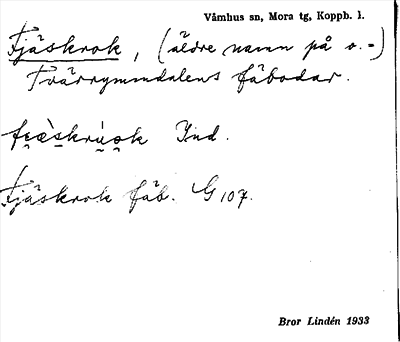 Våmhus sn, Mora tg, Koppb. l.
Fjäskrok, (äldre namn på o.-)
Tvärrymmdalens fäbodar.
fi̯æ̀skrùo̯k Ind.
Fjäskrok fäb. G 107.
Bror Lindén 1933